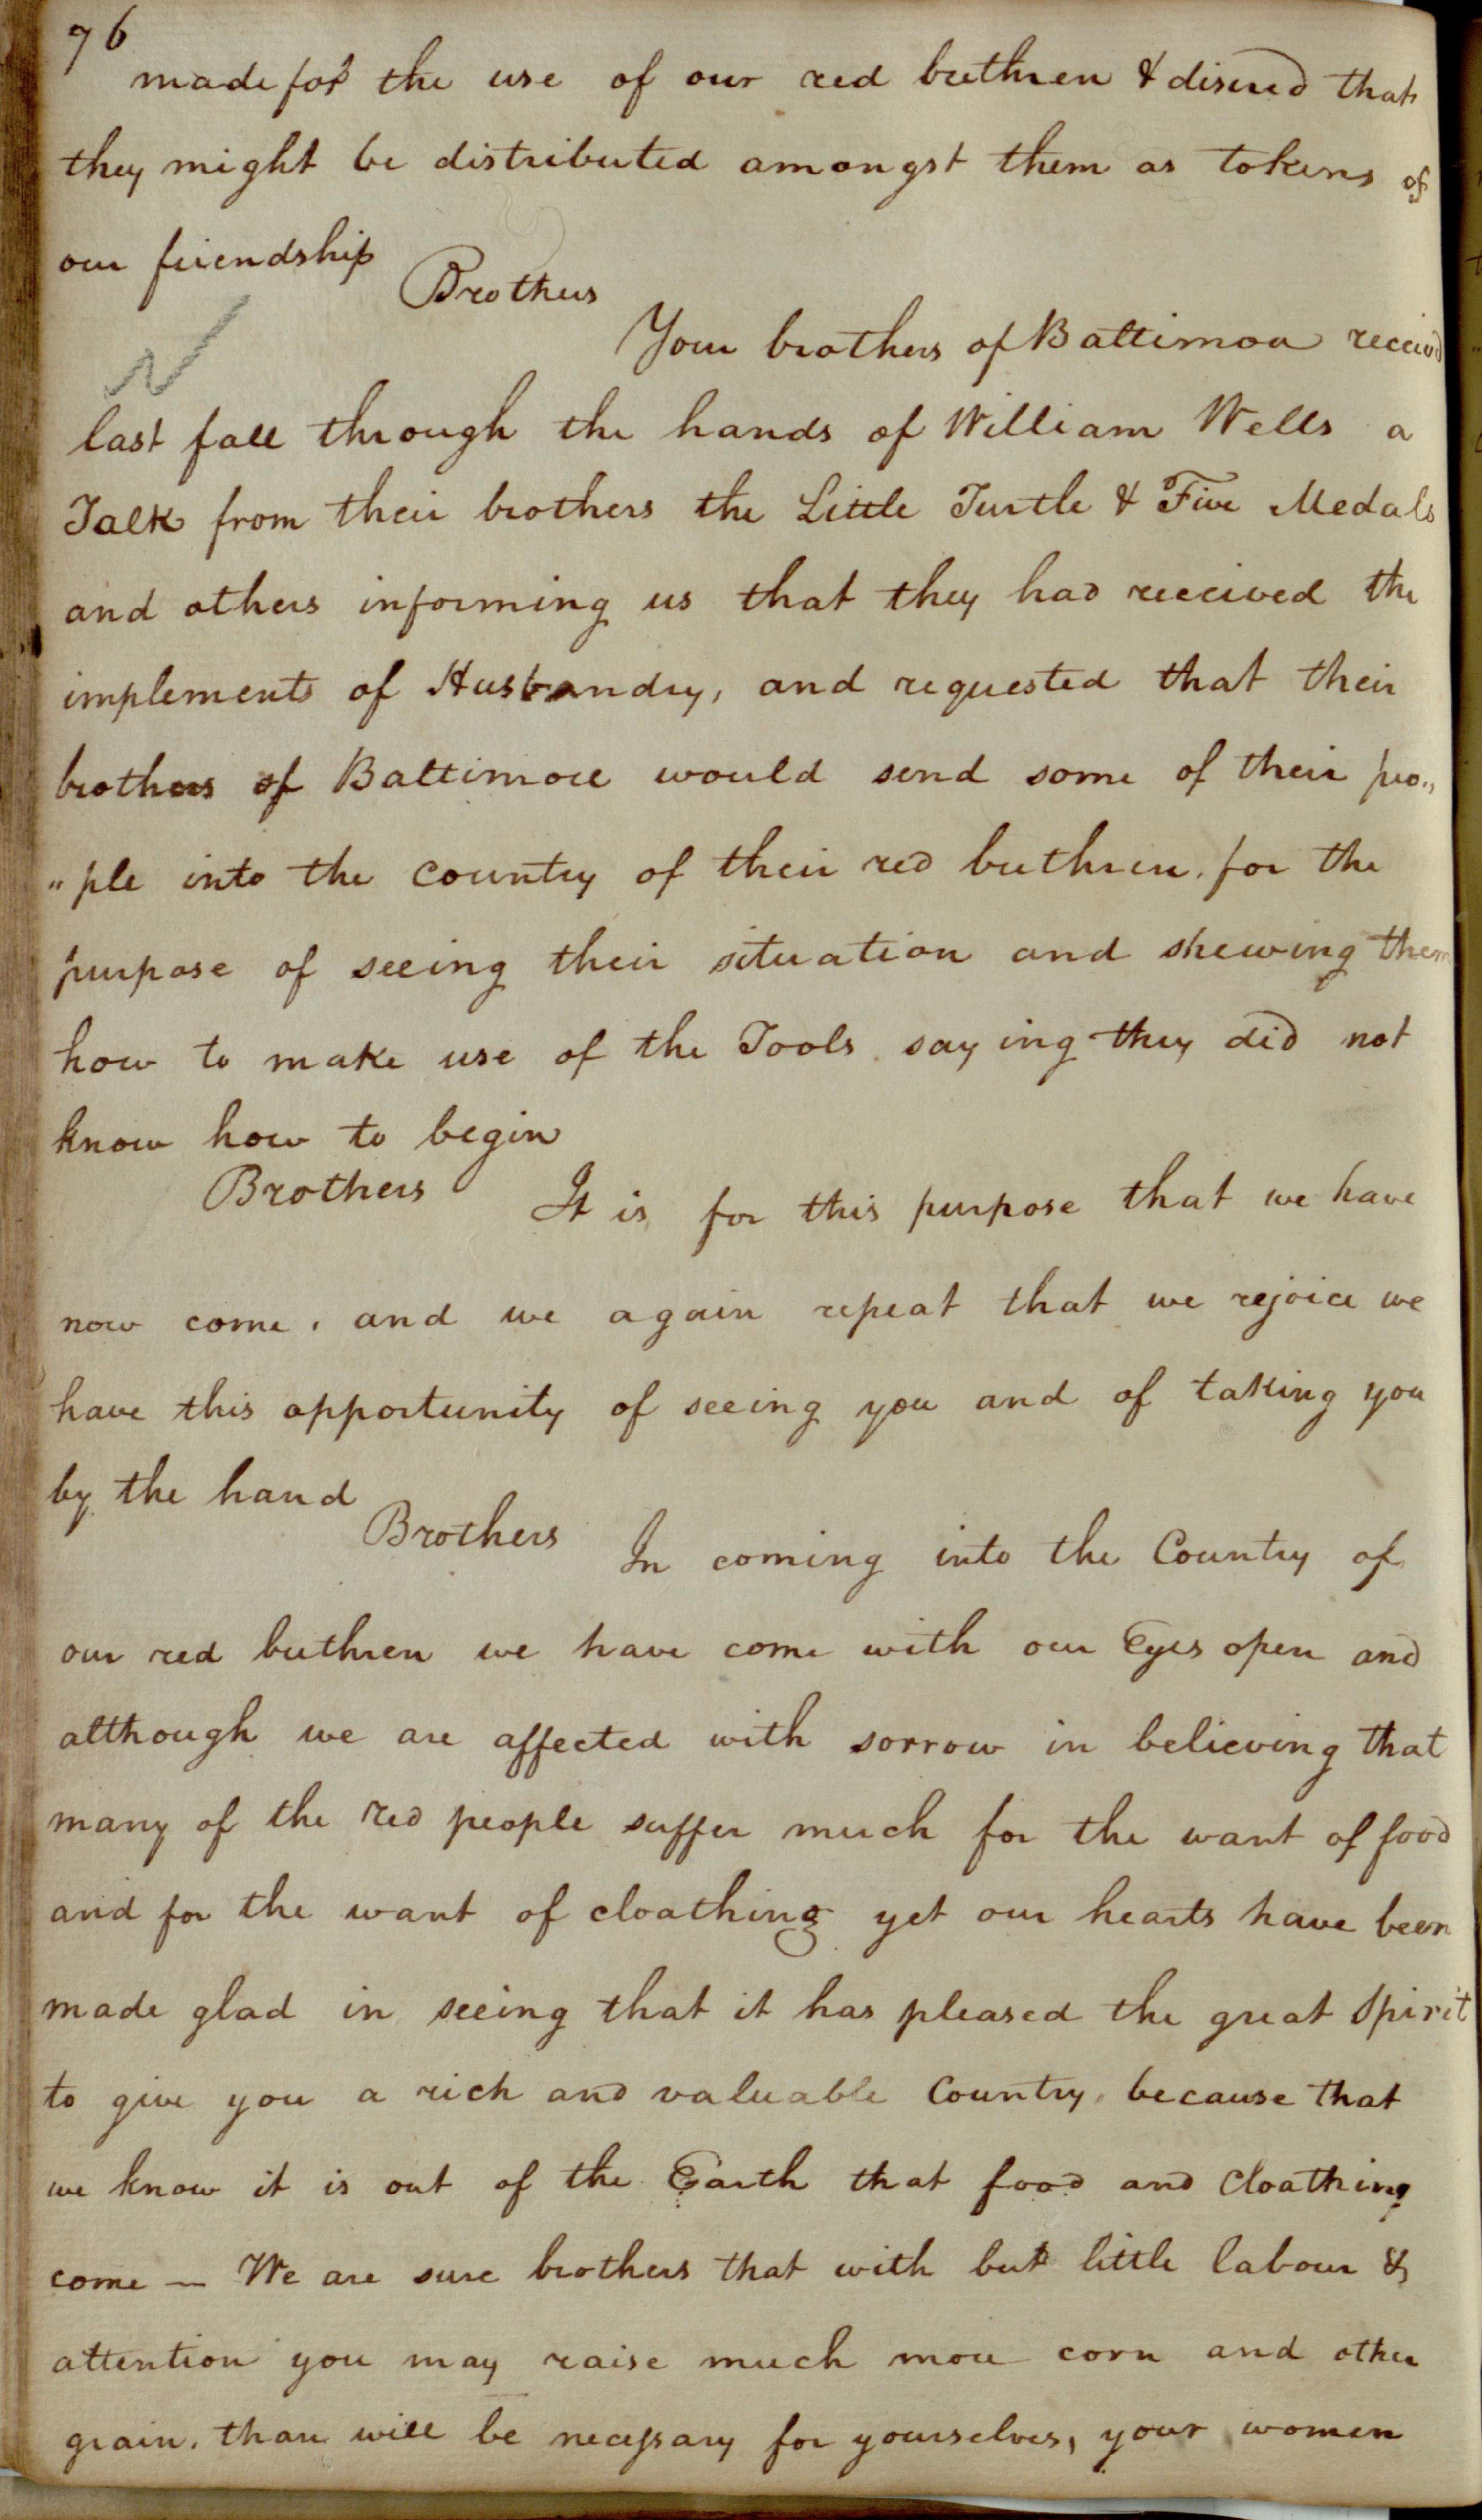 76
made for the use of our red brethren & disired that
they might be distributed amongst them as tokens of
our friendship
Brothers
Your brothers of Baltimore received
last fall through the hands of William Wells a
Talk from their brothers the Little Turtle & Five Medals
and others informing us that they had received the
implements of Husbandry, and requested that their
brothers of Baltimore would send some of their peo„
„ple into the country of their red brethren. for the
purpose of seeing their situation and shewing them
how to make use of the Tools saying they did not
know how to begin
Brothers It is for this purpose that we have
now come, and we again repeat that we rejoice we
have this opportunity of seeing you and of taking you
by the hand
Brothers In coming into the Country of
our red brethren we have come with our Eyes open and
although we are affected with sorrow in believing that
many of the red people suffer much for the want of food
and for the want of cloathing yet our hearts have been
made glad in seeing that it has pleased the great Spirit
to give you a rich and valuable Country, because that
we know it is out of the Earth that food and Cloathing
come — We are sure brothers that with but little labour &
attention you may raise much more corn and other
grain, than will be necessary for yourselves, your women